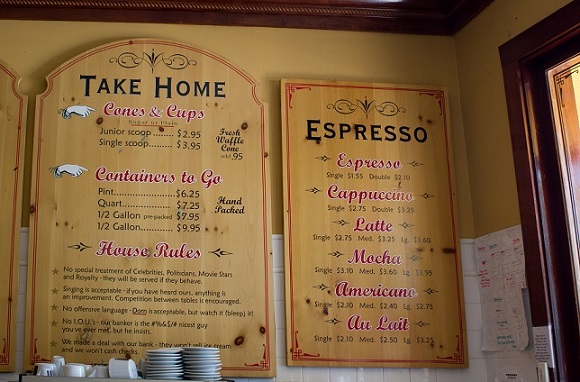 TAKE HOME
Cones & Cups
Sugar or Plain
Junior scoop $2.95
Single scoop $3.95
Fresh
Waffle
Cone
.95
Containers to Go
Pint $6.25
Quart $7.25
1/2 Gallon pre-packed $7.95
1/2 Gallon $9.95
Hand
Packed
House Rules
No special treatment of Celebrities, Politicians, Movie Stars
and Royalty - they will be served if they behave.
Singing is acceptable - if you have good ears, anything is
an improvement. Competition between tables is encouraged.
No offensive language - Darn is acceptable, but watch it (bleep) it!
No I.O.U.'s - our banker is the #%&$/# nicest guy
you've ever met, but he insists.
We made a deal with our bank - they won't sell ice cream
and we won't cash checks.
ESPRESSO
Espresso
Single $1.55 Double $2.10
Cappuccino
Single $2.75 Double $3.25
Latte
Single $2.75 Med. $3.25 Lg. $3.60
Mocha
Single $3.10 Med. $3.60 Lg. $3.95
Americano
Single $2.10 Med. $2.40 Lg. $2.75
Au Lait
Single $2.10 Med. $2.50 Lg. $3.25